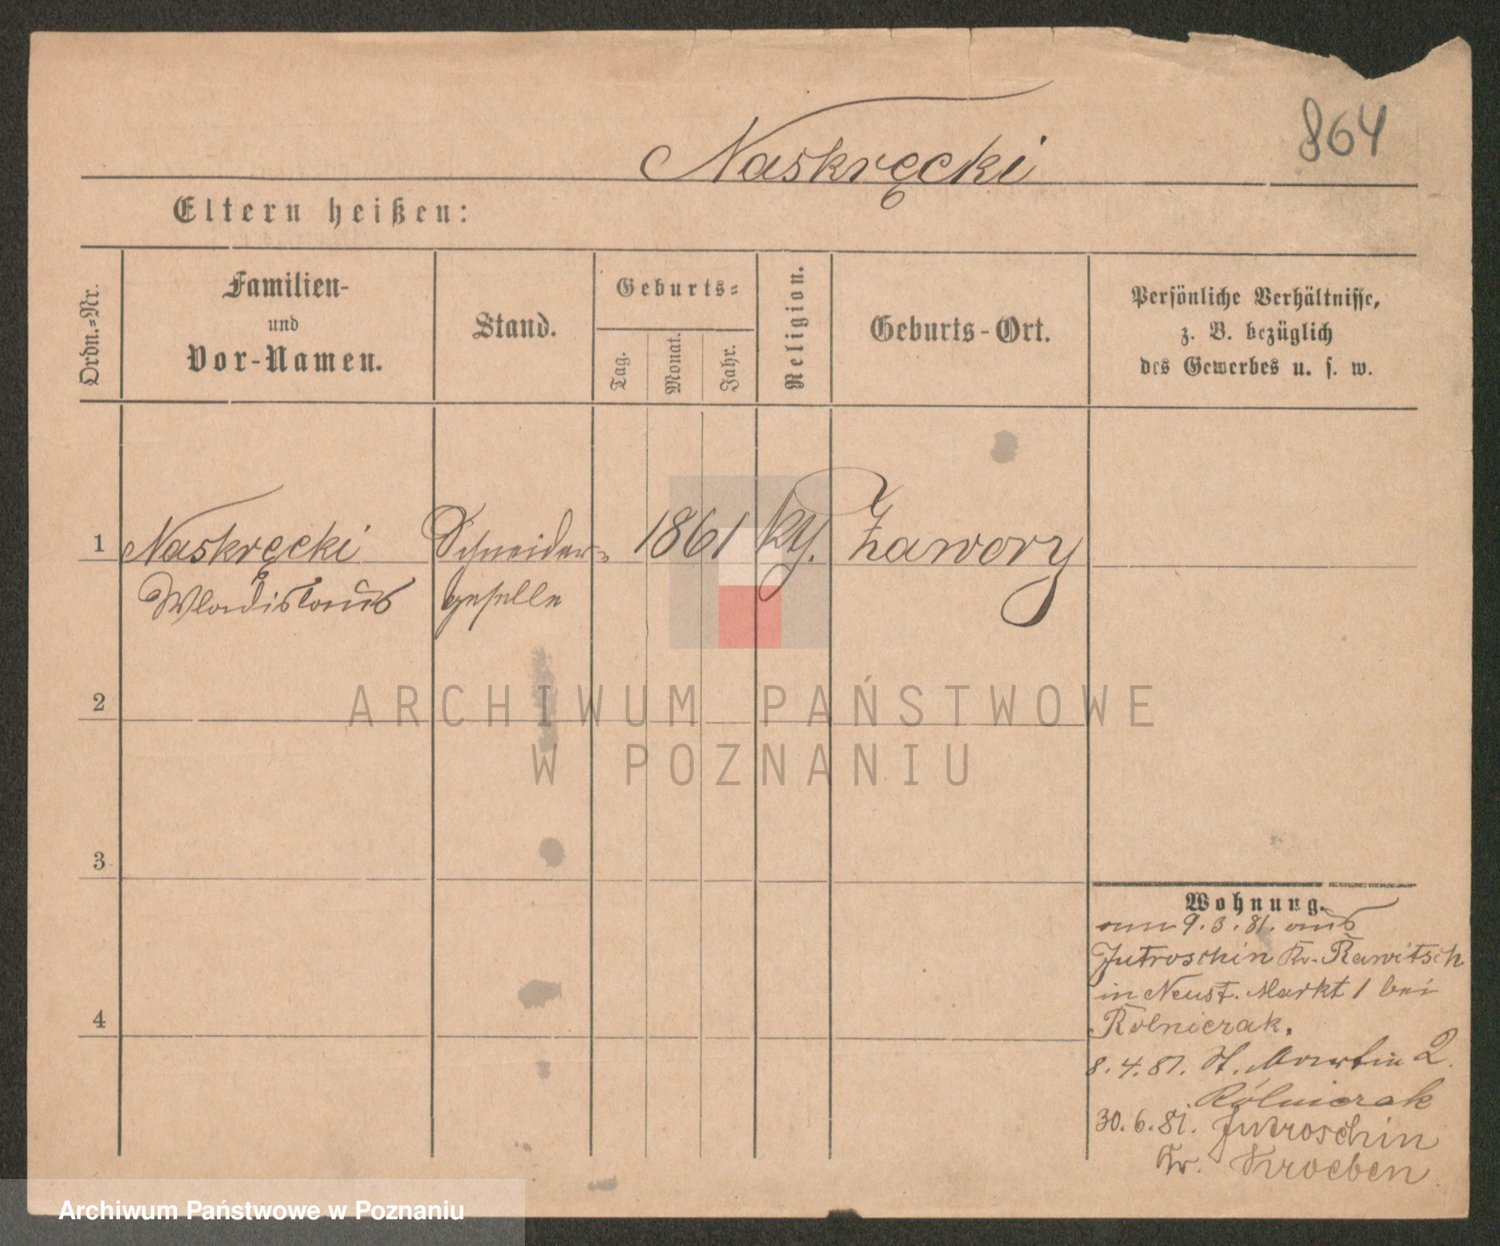 864
Naskręcki
Eltern heißen:
Ordn.=Nr.
Familien-
und
Vor-Namen.
Stand.
Geburts=
Tag.
Monat.
Jahr.
Religion.
Geburts-Ort.
Persönliche Verhältnisse,
z. B. bezüglich
des Gewerbes u. s. w.
1 Naskręcki Schneider= 1861 Zawory
Wladislaus geselle
2
3
4
Wohnung.
am 9.3.81. aus
Jutroschin Kr. Rawitsch
in Neust. Markt 1 bei
Rolnierak.
8.4.81. St. Martin 2.
Rólnierak
30.6.81. Jutroschin
Kr. Kroeben
ARCHIWUM PAŃSTWOWE
W POZNANIU
Archiwum Państwowe w Poznaniu